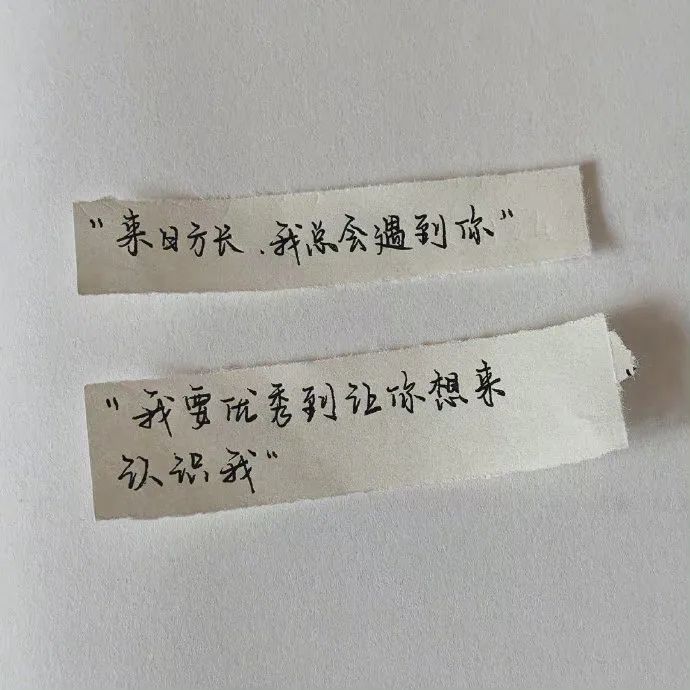 "来日方长、我总会遇到你"
"我要优秀到让你想来
认识我"